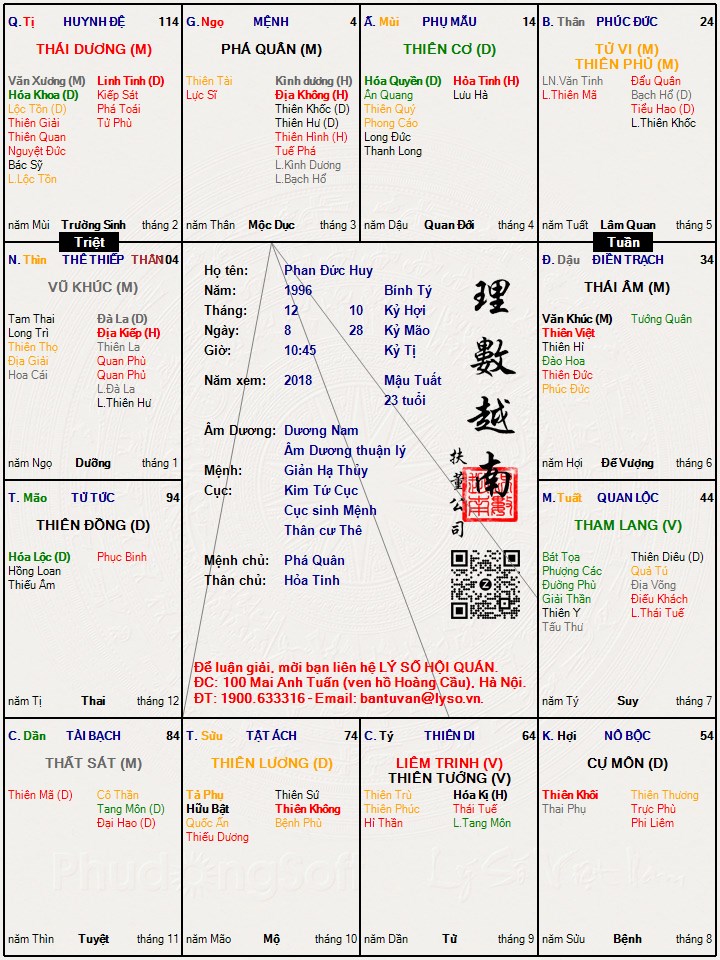 Q. Tị HUYNH ĐỆ 114
THÁI DƯƠNG (M)
Văn Xương (M) Linh Tinh (D)
Hóa Khoa (D) Kiếp Sát
Lộc Tồn (D) Phá Toái
Thiên Giải Tử Phù
Thiên Quan
Nguyệt Đức
Bác Sỹ
L.Lộc Tồn
năm Mùi Trường Sinh tháng 2
G. Ngọ MỆNH 4
PHÁ QUÂN (M)
Thiên Tài Kình dương (H)
Lực Sĩ Địa Không (H)
Thiên Khốc (D)
Thiên Hư (D)
Thiên Hình (H)
Tuế Phá
L.Kình Dương
L.Bạch Hổ
năm Thân Mộc Dục tháng 3
Ấ. Mùi PHỤ MẪU 14
THIÊN CƠ (D)
Hóa Quyền (D) Hỏa Tinh (H)
Ân Quang Lưu Hà
Thiên Quý
Phong Cáo
Long Đức
Thanh Long
năm Dậu Quan Đới tháng 4
B. Thân PHÚC ĐỨC 24
TỬ VI (M)
THIÊN PHỦ (M)
LN.Văn Tinh Đẩu Quân
L.Thiên Mã Bạch Hổ (D)
Tiểu Hao (D)
L.Thiên Khốc
năm Tuất Lâm Quan tháng 5
Triệt
Tuần
N. Thìn THÊ THIẾP THÂN 104
VŨ KHÚC (M)
Tam Thai Đà La (D)
Long Trì Địa Kiếp (H)
Thiên Thọ Thiên La
Địa Giải Quan Phù
Hoa Cái Quan Phủ
L.Đà La
L.Thiên Hư
năm Ngọ Dưỡng tháng 1
Họ tên: Phan Đức Huy
Năm: 1996 Bính Tý
Tháng: 12 10 Kỷ Hợi
Ngày: 8 28 Kỷ Mão
Giờ: 10:45 Kỷ Tị
Năm xem: 2018 Mậu Tuất
23 tuổi
Âm Dương: Dương Nam
Âm Dương thuận lý
Mệnh: Giản Hạ Thủy
Cục: Kim Tứ Cục
Cục sinh Mệnh
Thân cư Thê
Mệnh chủ: Phá Quân
Thân chủ: Hỏa Tinh
理數越南
扶董公司
Để luận giải, mời bạn liên hệ LÝ SỐ HỘI QUÁN.
ĐC: 100 Mai Anh Tuấn (ven hồ Hoàng Cầu), Hà Nội.
ĐT: 1900.633316 - Email: bantuvan@lyso.vn.
Đ. Dậu ĐIỀN TRẠCH 34
THÁI ÂM (M)
Văn Khúc (M) Tướng Quân
Thiên Việt
Thiên Hỉ
Đào Hoa
Thiên Đức
Phúc Đức
năm Hợi Đế Vượng tháng 6
T. Mão TỬ TỨC 94
THIÊN ĐỒNG (D)
Hóa Lộc (D) Phục Binh
Hồng Loan
Thiếu Âm
năm Tị Thai tháng 12
M. Tuất QUAN LỘC 44
THAM LANG (V)
Bát Tọa Thiên Diêu (D)
Phượng Các Quả Tú
Đường Phù Địa Võng
Giải Thần Điếu Khách
Thiên Y L.Thái Tuế
Tấu Thư
năm Tý Suy tháng 7
C. Dần TÀI BẠCH 84
THẤT SÁT (M)
Thiên Mã (D) Cô Thần
Tang Môn (D)
Đại Hao (D)
năm Thìn Tuyệt tháng 11
T. Sửu TẬT ÁCH 74
THIÊN LƯƠNG (D)
Tả Phụ Thiên Sứ
Hữu Bật Thiên Không
Quốc Ấn Bệnh Phù
Thiếu Dương
năm Mão Mộ tháng 10
C. Tý THIÊN DI 64
LIÊM TRINH (V)
THIÊN TƯỚNG (V)
Thiên Trù Hóa Kị (H)
Thiên Phúc Thái Tuế
Hỉ Thần L.Tang Môn
năm Dần Tử tháng 9
K. Hợi NÔ BỘC 54
CỰ MÔN (D)
Thiên Khôi Thiên Thương
Thai Phụ Trực Phù
Phi Liêm
năm Sửu Bệnh tháng 8
Lý Số Việt Nam